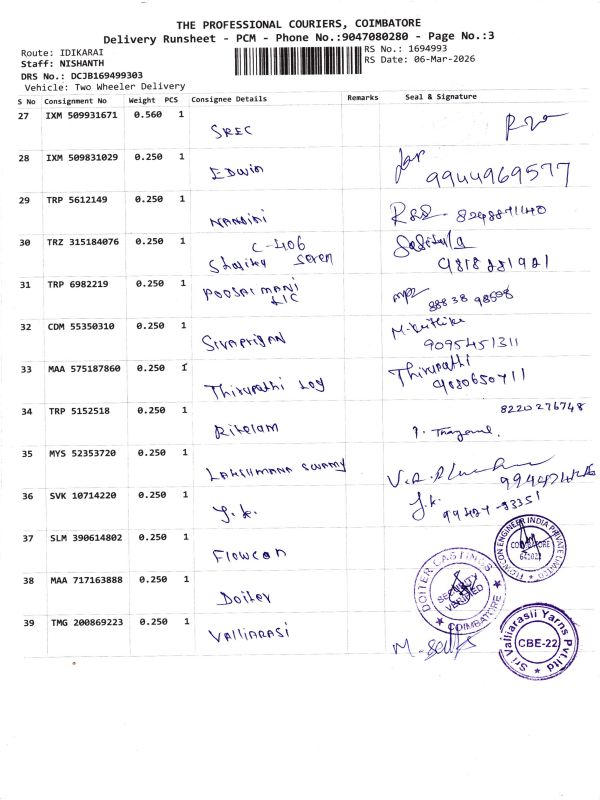 THE PROFESSIONAL COURIERS, COIMBATORE
Delivery Runsheet - PCM - Phone No.:9047080280 - Page No.:3
Route: IDIKARAI
RS No.: 1694993
Staff: NISHANTH
RS Date: 06-Mar-2026
DRS No.: DCJB169499303
Vehicle: Two Wheeler Delivery
S No Consignment No Weight PCS Consignee Details Remarks Seal & Signature
27 IXM 509931671 0.560 1
SREC
28 IXM 509831029 0.250 1
Edwin
9944969577
29 TRP 5612149 0.250 1
Nandini
30 TRZ 315184076 0.250 1
C-406
seven
31 TRP 6982219 0.250 1
POOSAI MANI
LIC
32 CDM 55350310 0.250 1
9095451311
33 MAA 575187860 0.250 1
Thirupathi
Thirupathi Log
34 TRP 5152518 0.250 1
8220276748
35 MYS 52353720 0.250 1
LAKSHMANA SWAMY
36 SVK 10714220 0.250 1
J.K.
J.K.
37 SLM 390614802 0.250 1
COIMBATORE
Flowcon
38 MAA 717163888 0.250 1
DOITER CASTINGS
SECURITY
VERIFIED
COIMBATORE
Doiter
39 TMG 200869223 0.250 1
Valliarasi
Sri Valliarasli Yarns Pvt.Ltd
CBE-22